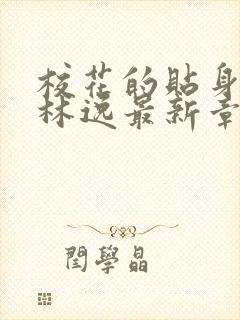 校花的貼身
林逸最新章
閆學晶